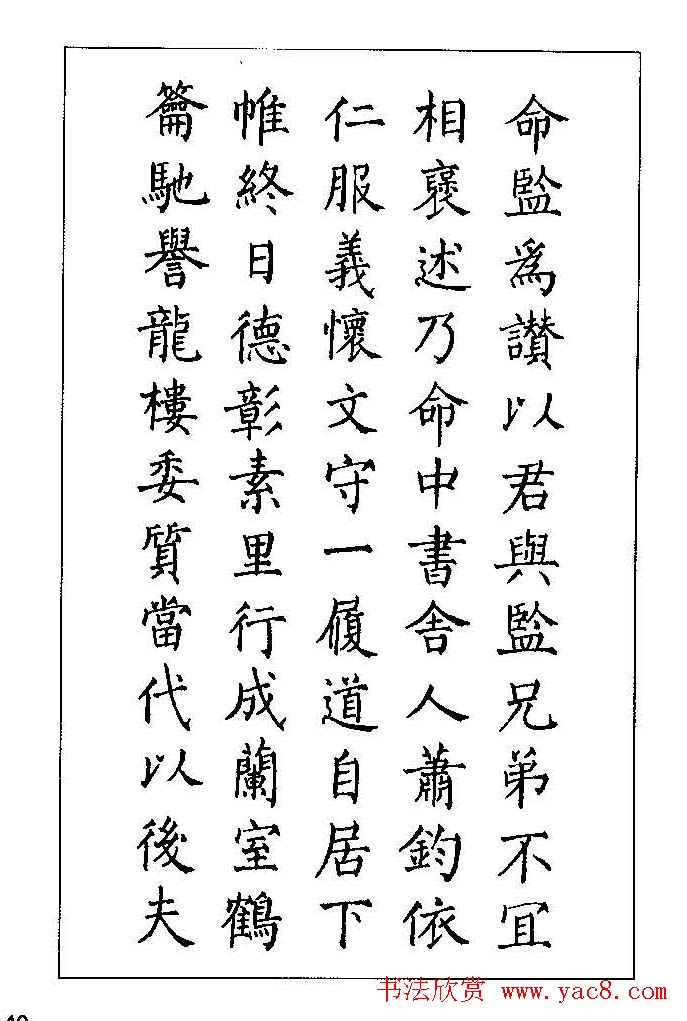 命監爲讃以君與監兄弟不冝
相襃述乃命中書舎人蕭鈞依
仁服義懷文守一履道自居下
帷終日德彰素里行成蘭室鶴
籥馳譽龍樓委質當代以後夫
书法欣赏 www.yac8.com